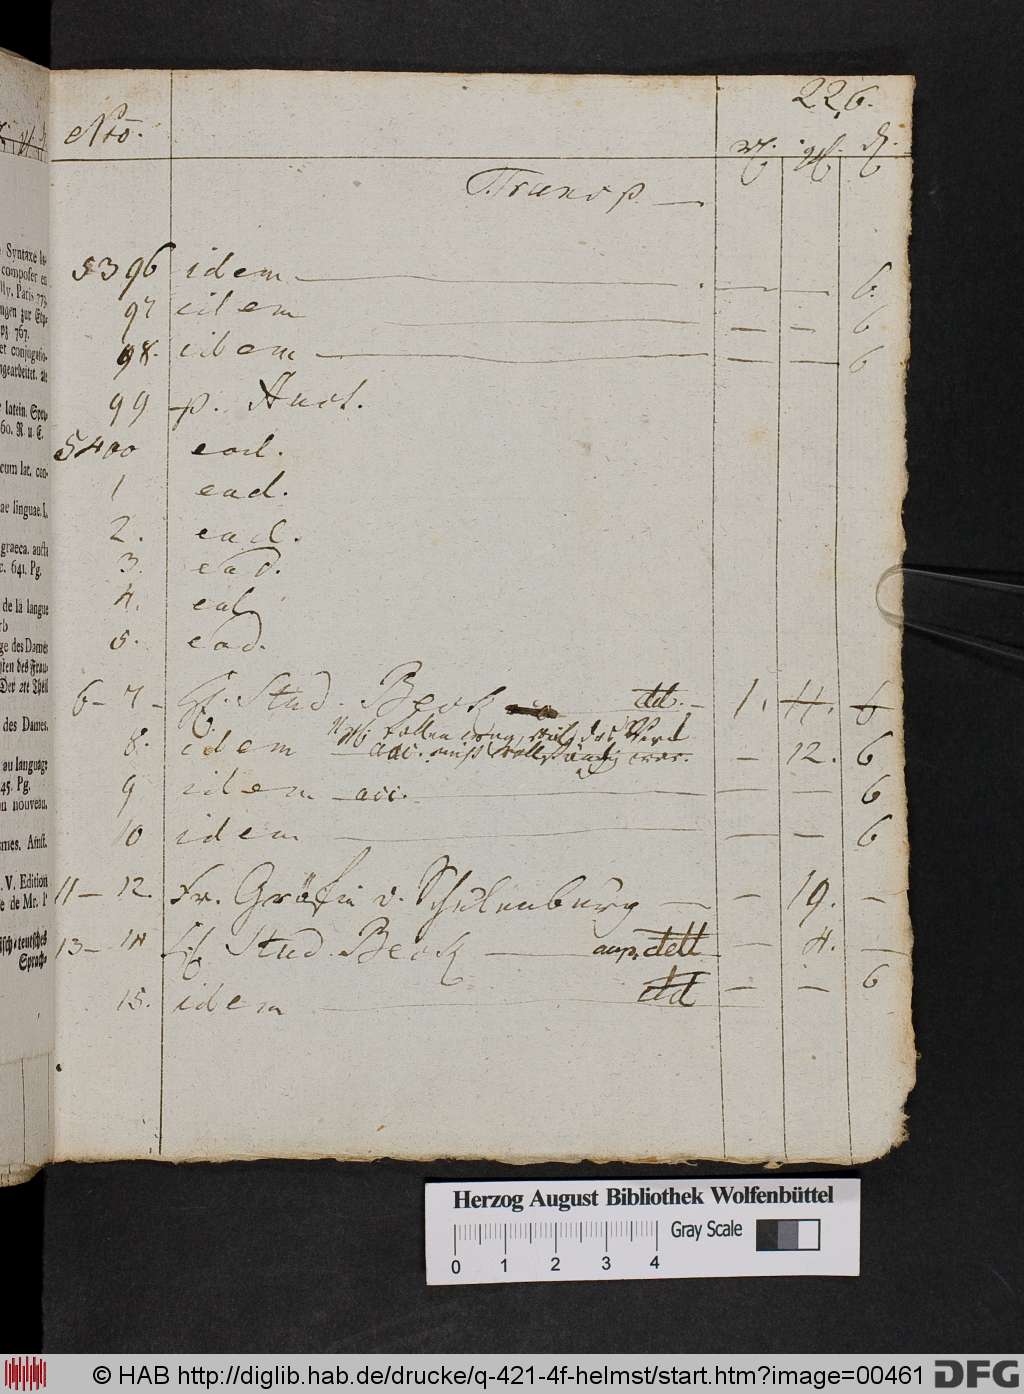 226.
Nro.
rℓ. gℓ. ₰.
Transp.
5396 idem — — — 6.
97 idem — — — 6
98. idem — — — 6
99 p. Auct.
5400 ead.
1 ead.
2. ead.
3. ead.
4. ead.
5. ead.
6 — 7 — H. Stud. Beck dd. — 1. 4. 6
8. idem — 12. 6
9 idem acc. — — — 6
10 idem — — — 6
11 — 12. Fr. Gräfin v. Schulenburg — — 19. —
13 — 14 H. Stud. Beck — — 4. —
15. idem dd — — 6
Syntaxe
composer en
Paris 773.
767.
et conjugatio-
latein.
60. R. u. E.
linguae. L.
graeca. aucta
c. 641. Pg.
de la langue
ge des Dames
Der 2te Theil
des Dames.
au language
45. Pg.
nouveau.
Amst.
V. Edition
de Mr.
Sprach-
Herzog August Bibliothek Wolfenbüttel
Gray Scale
0 1 2 3 4
© HAB http://diglib.hab.de/drucke/q-421-4f-helmst/start.htm?image=00461
DFG